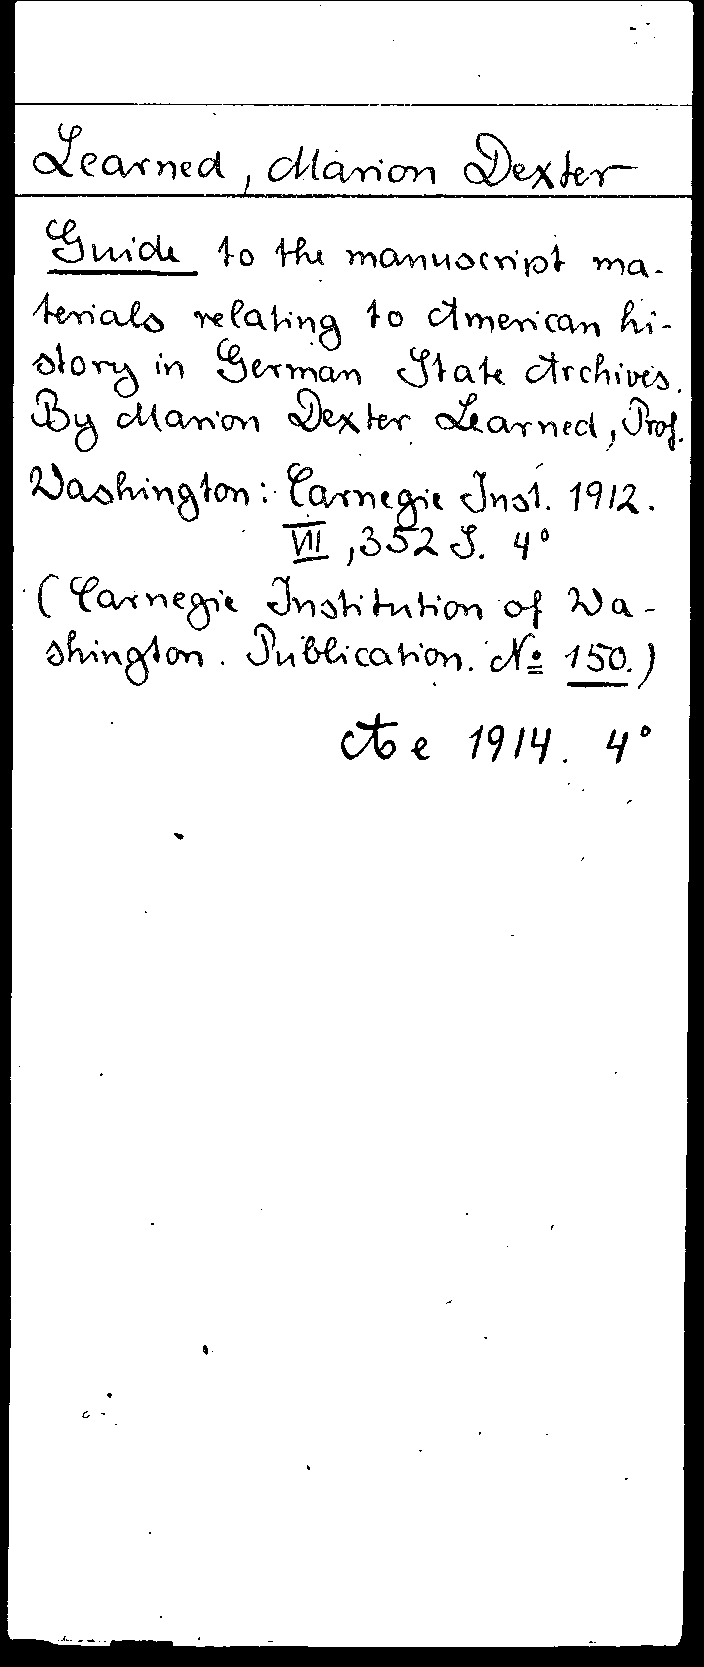 Learned, Marion Dexter
Guide to the manuscript ma-
terials relating to American hi-
story in German State Archives.
By Marion Dexter Learned, Prof.
Washington: Carnegie Inst. 1912.
VII, 352 S. 4°
(Carnegie Institution of Wa-
shington. Publication. No 150.)
Ae 1914. 4°